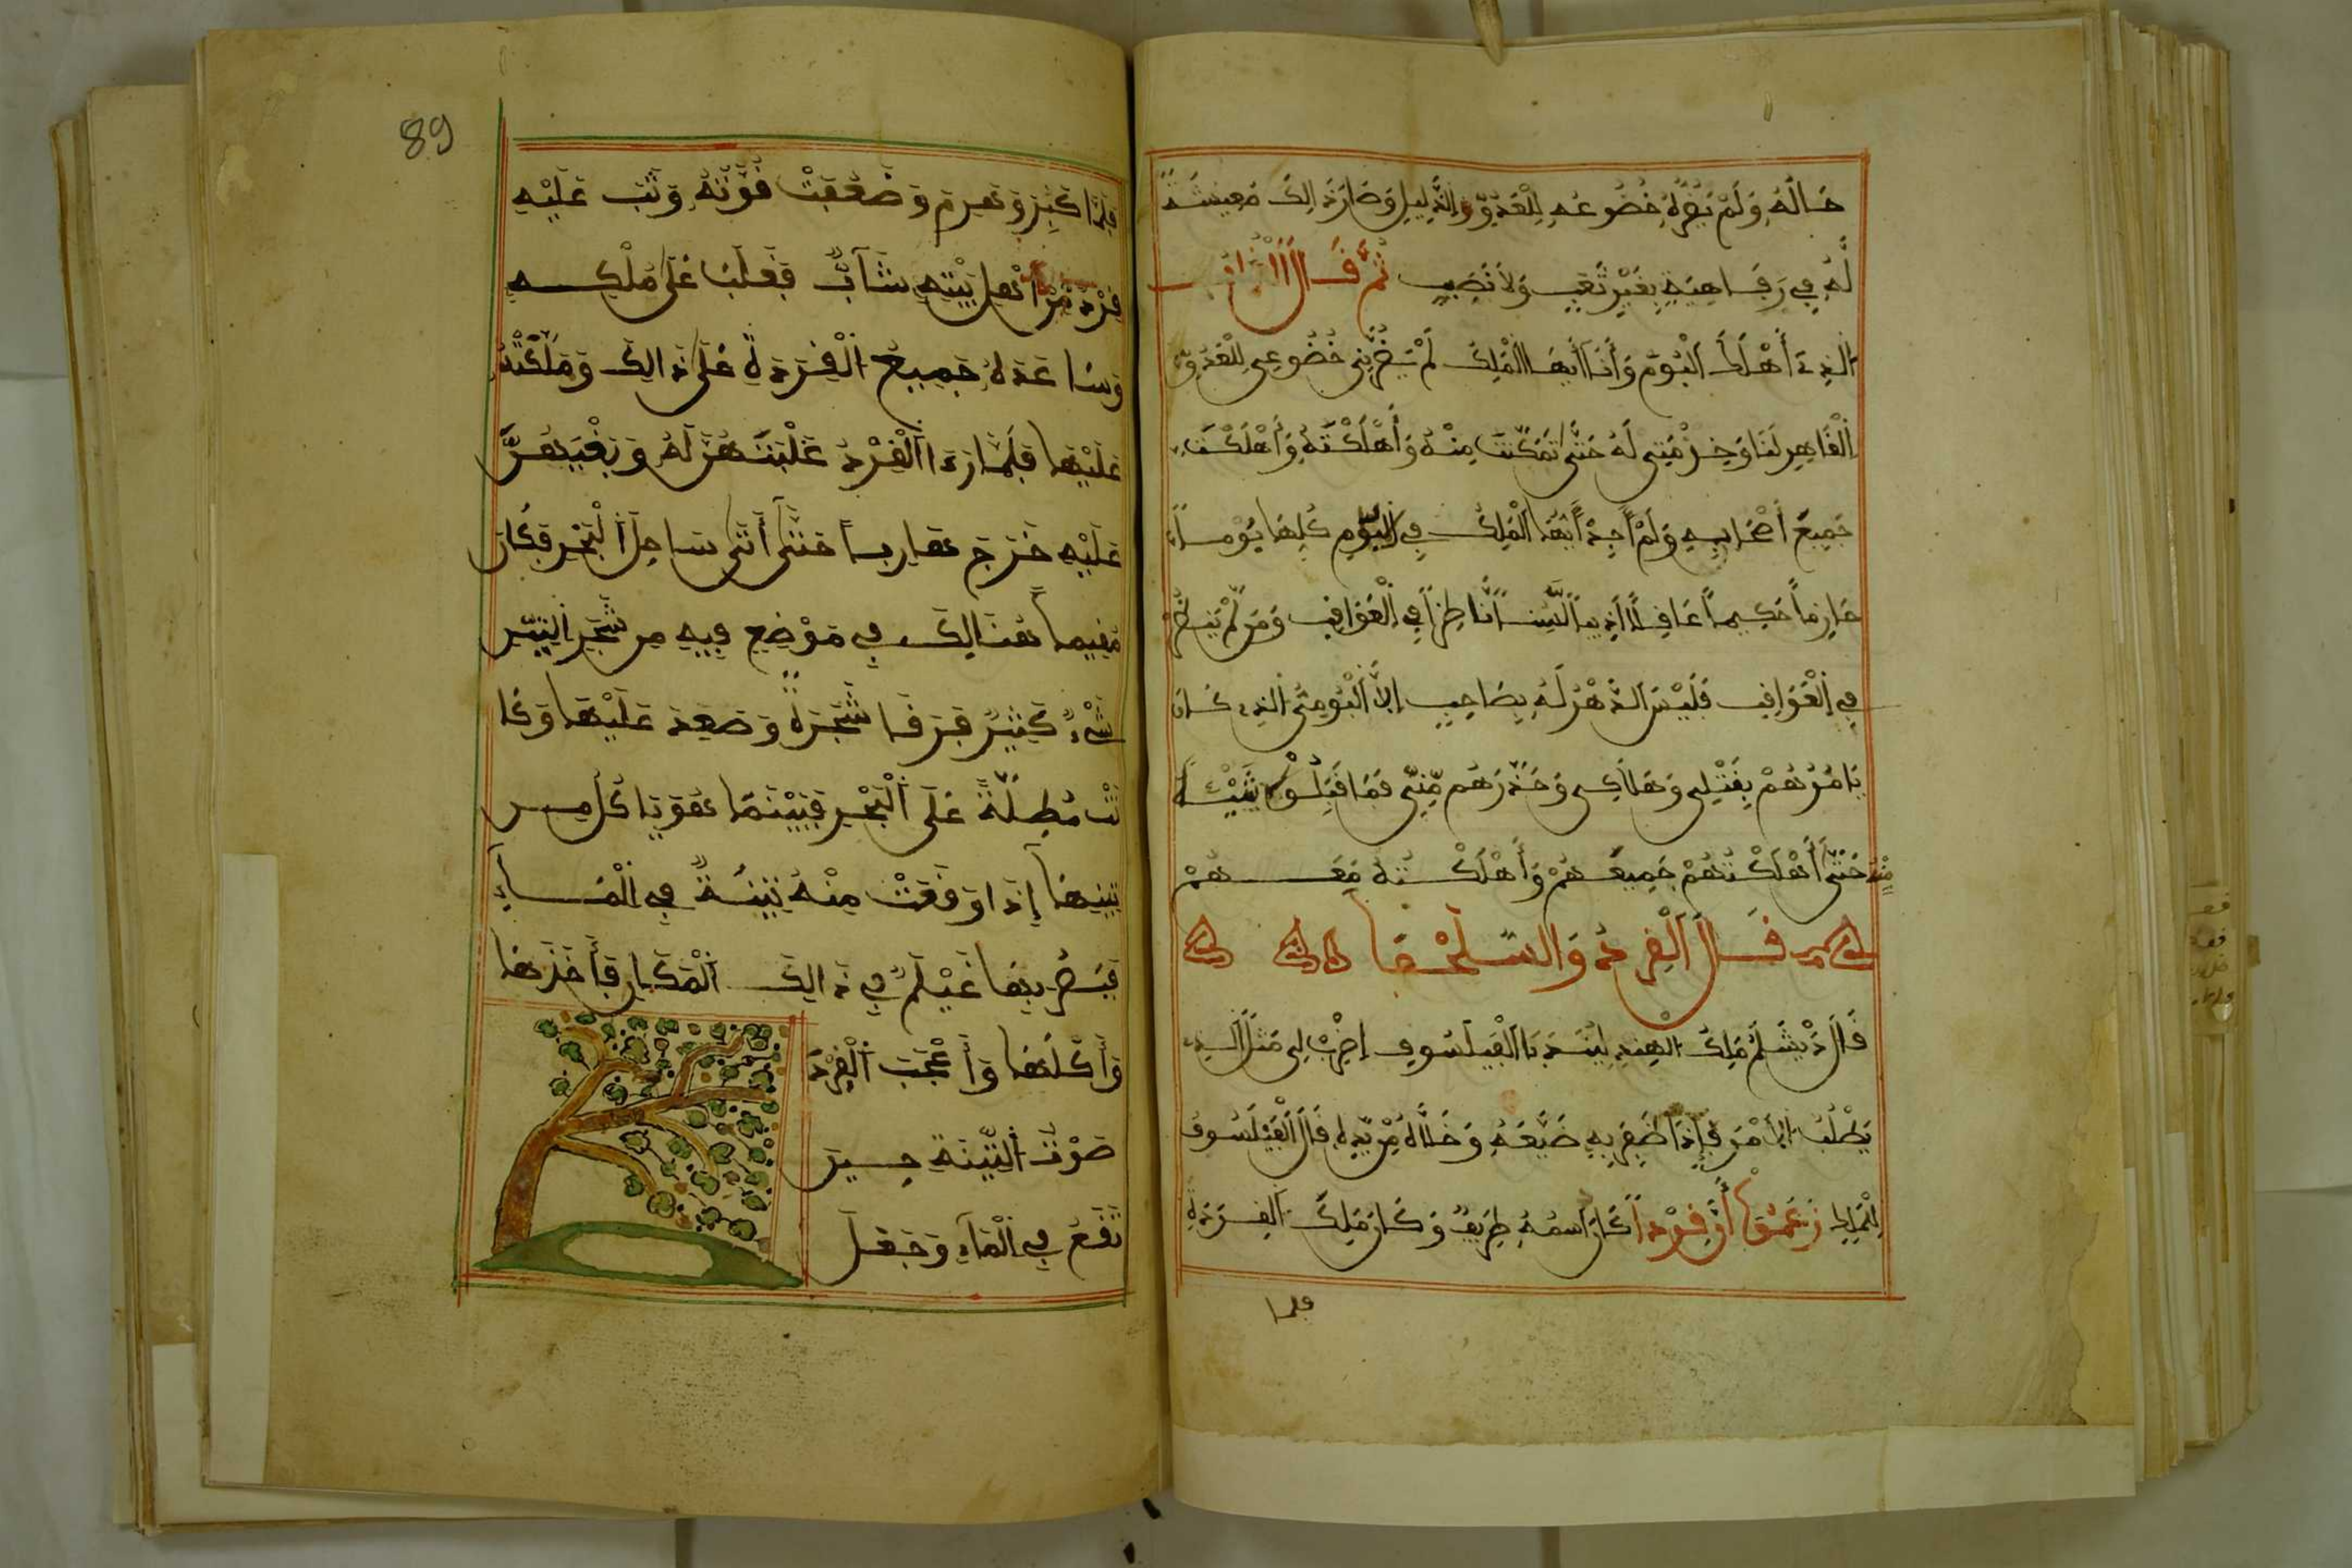 حَالَهُ وَلَمْ يَضُرَّهُ خُضُوعُهِ لِلْعَدُوِّ والذَّلِيلِ وَصَارَ ذَالِكَ مَعِيشَةً
لَّهُ فِي رَفَاهِيَةٍ بِغَيْرِ تَعَبٍ وَلاَ نَصَبٍ ثُمَّ قَالَ الْغُرَابُ
الذِي أَهْلَكَ الْبُومَ وَأَنَا أَيُّهَا الْمَلِكُ لَمْ يَضُرَّنِي خُضُوعِي لِلْعَدُوِّ
الْقَاهِرِ لَنَا وَخِدْمَتِي لَهُ حَتَّى تَمَكَّنْتُ مِنْهُ وَأَهْلَكْتُهُ وَأَهْلَكْتُ
جَمِيعَ أَصْحَابِهِ وَلَمْ أَجِدْ أَيُّهَا الْمَلِكُ فِي الْبُومِ كُلِّهَا بُوماً
حَازِماً حَكِيماً عَاقِلاً أَدِيباً لَّبِيباً نَّاظِراً فِي الْعَوَاقِبِ وَمَن لَّمْ يَنظُرْ
فِي الْعَوَاقِبِ فَلَيْسَ الدَّهْرُ لَهُ بِصَاحِبٍ إِلاَّ الْبُومَةُ الذِي كَانَ
يَامُرُهُمْ بِقَتْلِي وَهَلاَكِي وَحَذَّرَهُم مِّنِّي فَمَا قَبِلُوا شَيْئاً
مِّنْهُ حَتَّى أَهْلَكْتُهُمْ جَمِيعَهُمْ وَأَهْلَكْتُهُ مَعَهُمْ
قَالَ الْقِرْدُ وَالسُّلَحْفَا
قَالَ دَبْشَلَمُ مَلِكُ الْهِنْدِ لِبَيْدَبَا الْفَيْلَسُوفِ إِضْرِبْ لِي مَثَلَ الذِي
يَطْلُبُ الأَمْرَ فَإِذَا ظَفِرَ بِهِ ضَيَّعَهُ وَخَلاَّهُ مِنْ يَّدِهِ قَالَ الْفَيْلَسُوفُ
زَعَمُوا أَنَّ قِرْداً كَانَ اسمُهُ وَكَانَ مَلِكَ الْقِرَدَةِ
فلما
89
فَلَمَّا كَبِرَ وَهَرِمَ وَضَعُفَتْ قُوَّتُهُ وَثَبَ عَلَيْهِ
قِرْدٌ مِّنْ أَهْلِ بَيْتِهِ شَآبٌّ فَغَلَبَ عَلَى مُلْكِهِ
وَسَاعَدَهُ جَمِيعُ الْقِرَدَةِ عَلَى ذَالِكَ وَمَلَّكَتْهُ
عَلَيْهَا فَلَمَّا رَءَا الْقِرْدُ غَلْبَتَهُمْ لَهُ وَبَغْيَهُمْ
عَلَيْهِ خَرَجَ هَارِباً حَتَّى أَتَى سَاحِلَ الْبَحْرِ فَكَانَ
مُقِيماً هُنَالِكَ فِي مَوْضِعٍ فِيهِ مِن شَجَرِ التِّينِ
شَيْءٌ كَثِيرٌ فَرَقَا شَجَرَةً وَصَعِدَ عَلَيْهَا وَكَا
نَتْ مُطِلَّةً عَلَى الْبَحْرِ فَبَيْنَمَا هُوَ يَاكُلُ مِن
تِينِهَا إِذَا وَقَعَتْ مِنْهُ تِينَةٌ فِي الْمَآءِ
فَبَصُرَ بِهَا غَيْلَمٌ فِي ذَالِكَ الْمَكَانِ فَأَخَذَهَا
وَأَكَلَهَا وَأَعْجَبَ الْقِرْدَ
صَوْتُ التِّينَةِ حِينَ
تَقَعُ فِي الْمَآءِ وَجَعَلَ